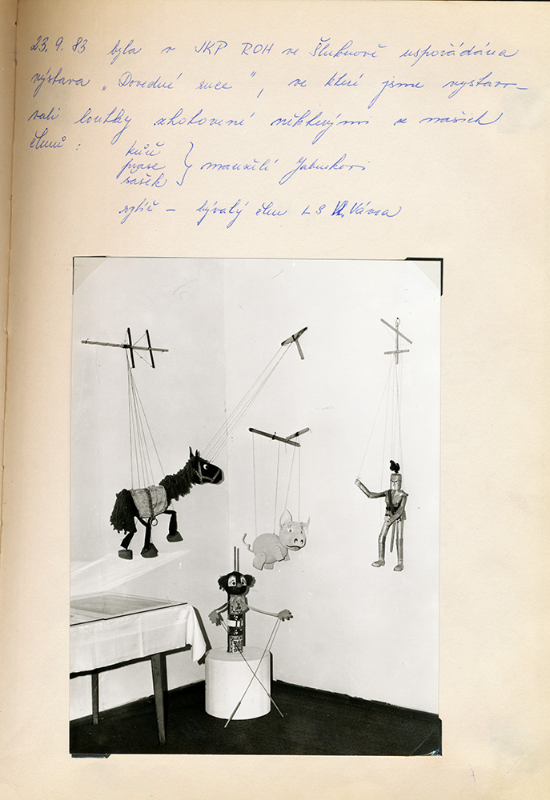 23.9.83 byla v JKP ROH ve Šluknově uspořádána
výstava „Dovedné ruce", ve které jsme vystavo-
vali loutky zhotovené některými z našich
členů :
kůň
prase
šašek } manželé Jabůrkovi
rytíř – bývalý člen LS Vávra